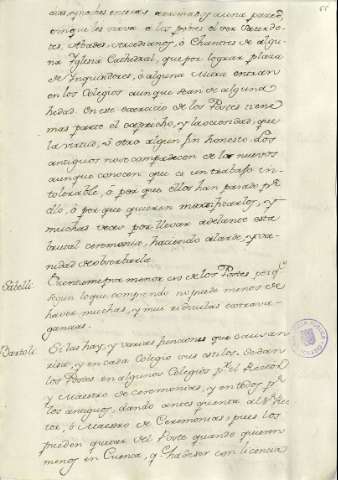 dias, y noches enteras arrimados a una pared,
sin que les valga a los pobres el ser Sacerdo-
tes, Abades, Arcedianos, ó Chantres de algu-
na Yglesia Cathedral, que por lograr plaza
de Ynquisidores, ó alguna Mitra entran
en los Colegios aunque sean de alguna
hedad. En este exercicio de los Postes tiene
mas parte el capricho, y la ociosidad, que
la virtud, ú otro algun fin honesto. Los
antiguos no se compadecen de los nuevos
aunque conocen que es un trabajo in-
tolerable, ó por que ellos han pasado pr.
ello, ó por que quieren mortificarlos, y
muchas veces por llevar adelante esta
brutal ceremonia, haciendo alarde, y va-
nidad de observarla.
Sabelli. Cuenteme por menor en de los Postes porqe.
segun lo que comprendo no puede menos de
haver muchas, y muy ridiculas extrava-
gancias.
Bartoli. Si las hay, y varias funciones que causan
risa, y en cada Colegio sus estilos. Se dan
los Postes en algunos Colegios pr. el Rector
y Maestro de ceremonias, y en todos pr.
los antiguos, dando antes quenta al Rec-
tor, ó Maestro de Ceremonias, pues los
pueden quitar del Poste quando quieren
menos en Cuenca, qe. ha de ser con licencia